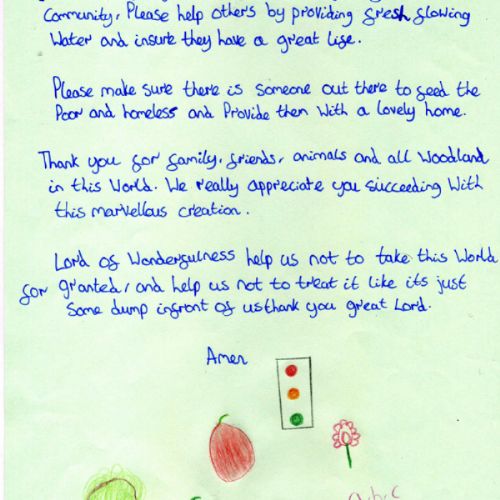 Community, Please help others by providing fresh flowing
Water and insure they have a great life.
Please make sure there is someone out there to feed the
Poor and homeless and Provide then With a lovely home.
Thank you for family, friends, animals and all Woodland
in this World. We really appreciate you succeeding With
this marvellous creation.
Lord of Wonderfulness help us not to take this World
for granted, and help us not to treat it like its just
Some dump infront of us thank you great Lord.
Amen
a,b,c